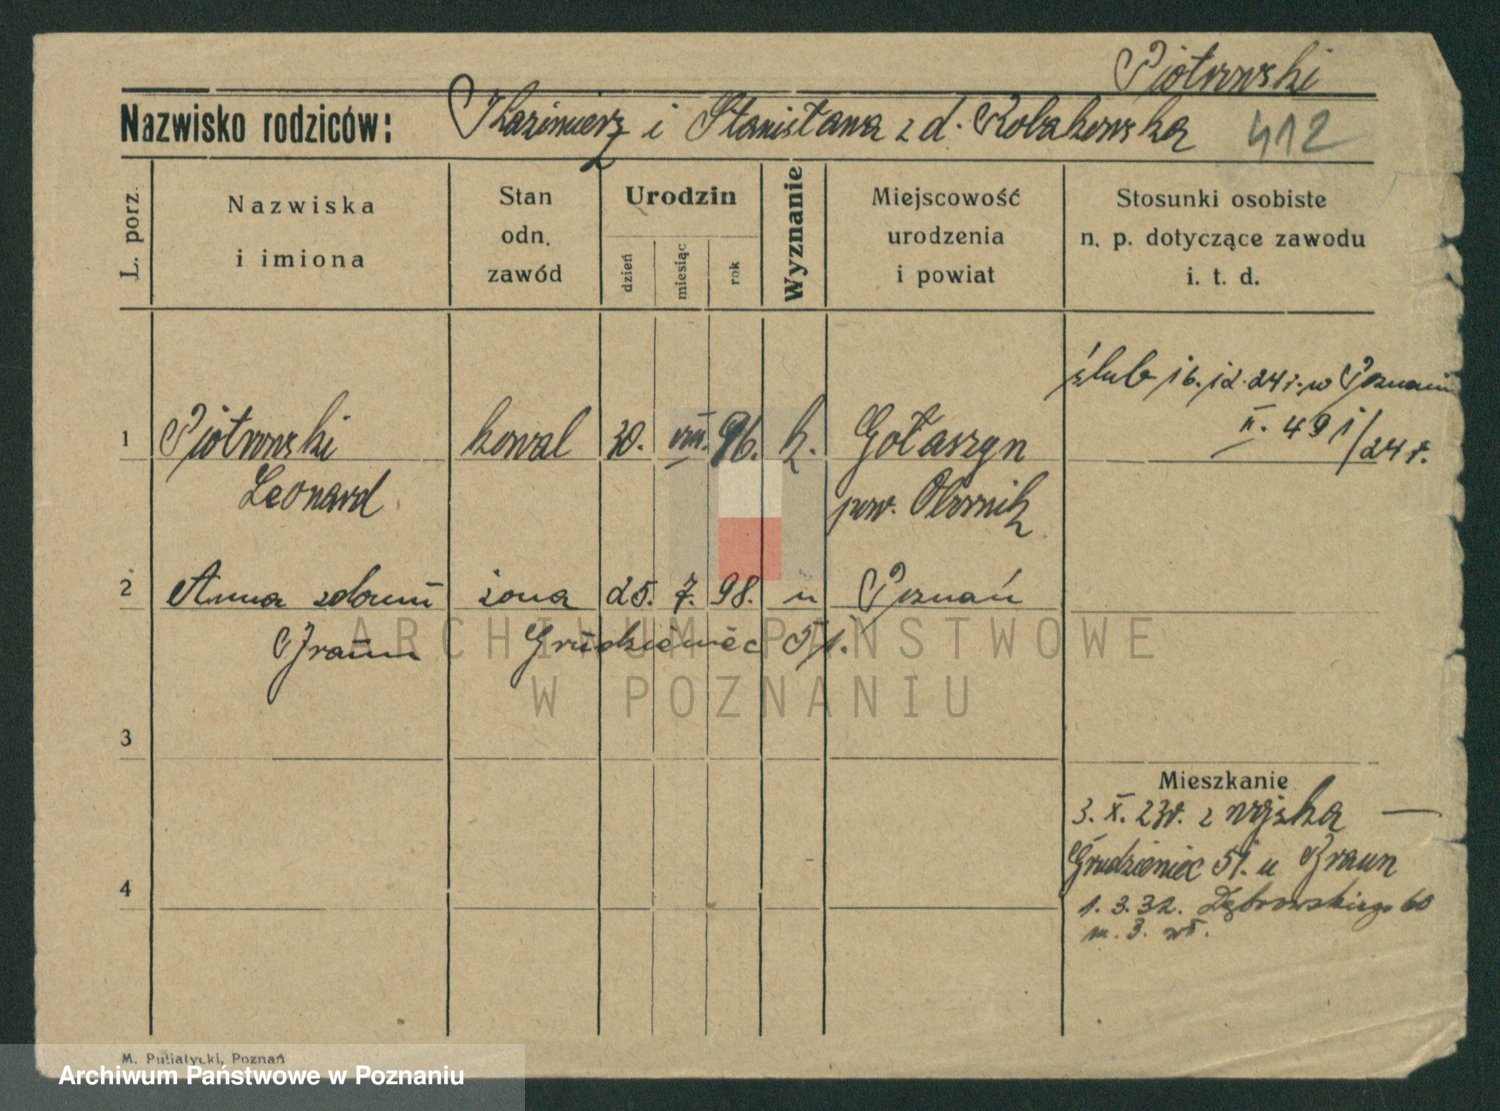 Piotrowski
Nazwisko rodziców: Kazimierz i Stanisława z d. Kołakowska 412
L. porz.
Nazwiska
i imiona
Stan
odn.
zawód
Urodzin
dzień
miesiąc
rok
Wyznanie
Miejscowość
urodzenia
i powiat
Stosunki osobiste
n. p. dotyczące zawodu
i. t. d.
ślub 16.12.24 r. w Poznaniu
II. 491/24 r.
1 Piotrowski kowal 30. VIII. 96. k. Gołaszyn
Leonard pow. Obornik
2 Anna żona 25. 7. 98. " Poznań
Braun Grudzieniec 51.
ARCHIWUM PAŃSTWOWE
W POZNANIU
3
Mieszkanie
3. X. 23r. z wojska —
Grudzieniec 51. u Braun
4
1. 3. 32. Dąbrowskiego 60
m. 3. wł.
M. Putiatycki, Poznań
Archiwum Państwowe w Poznaniu